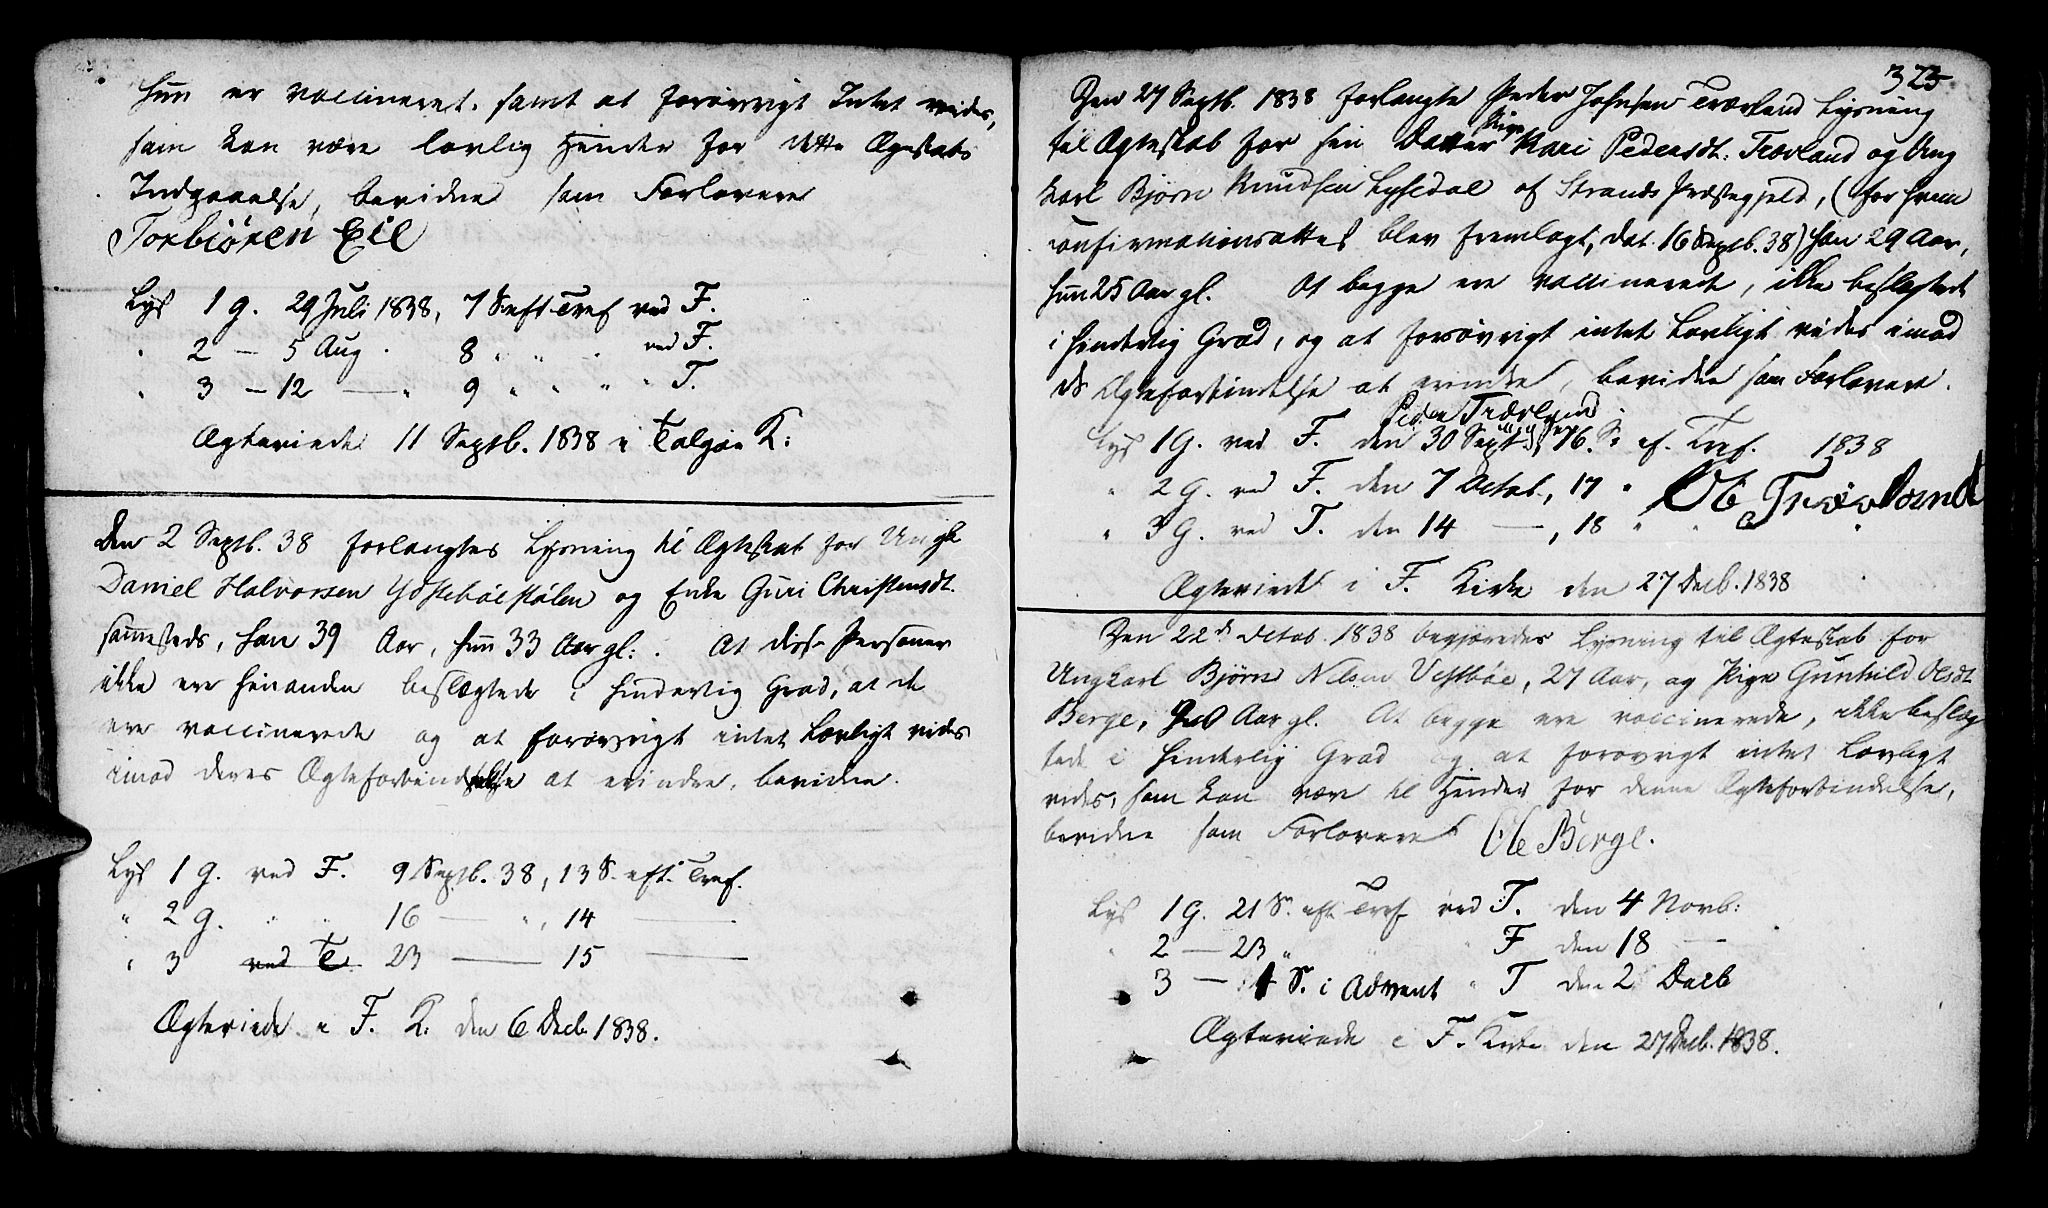 hun er vaccineret. samt at forøvrigt Intet vides,
som kan være lovlig Hinder for dette Ægteskabs
Indgaaelse, bevidne som Forlovere
Torbiøren Eie
Lys 1 g. 29 Juli 1838, 7 S. eft Tref ved F.
" 2 — 5 Aug. 8 " " " ved F.
" 3 — 12 — " 9 " " " " T.
Ægteviede 11 Septb. 1838 i Talgøe K:
Den 2 Septb. 38 forlangtes Lysning til Ægteskab for Ungk
Daniel Halvorsen Ydstebøestølen og Enke Guri Christensdt.
sammesteds, han 39 Aar, hun 33 Aar gl: . At disse Personer
ikke ere hinanden beslægtede i hinderlig Grad, at de
ere vaccinerede og at forøvrigt intet Lovligt vides
imod deres Ægteforbindelse at erindre, bevidne.
Lys 1 g. ved F. 9 Septb. 38, 13 S. eft. Tref.
" 2 g. " " 16 — ", 14 —
" 3 ved T. 23 — 15 —
Ægteviede i F. K. den 6 Decb. 1838.
323.
Den 27 Septb. 1838 forlangte Peder Johnsen Trærland Lysning
til Ægteskab for sin Datter Pige Kari Pedersdt. Trærland og Ung
karl Bjørn Knudsen Lysedal af Strands Præstegjeld, (for hvem
confirmationsattest blev fremlagt, dat. 16 Septb. 38) han 29 Aar,
hun 25 Aar gl. At begge ere vaccinerede, ikke beslægtede
i hinderlig Grad, og at forøvrigt intet Lovligt vides imod
ds Ægteforbindelse at erindre, bevidne som Forlovere.
Peder Trærland
Lys 1 G. ved F. den 30 Sept, 16. S: ef. Tref. 1838
" 2 G. ved F. den 7 Octob., 17 " Ole Træeland
" 3 G. ved T. den 14 —, 18 " " "
Ægteviede i F. Kirke den 27 Decb. 1838
Den 22d Octob. 1838 begjæredes Lysning til Ægteskab for
Ungkarl Bjørn Nilsen Vestbøe, 27 Aar, og Pige Gunhild Olsdt
Berge, Aar gl. At begge ere vaccinerede, ikke beslæg
tede i hinderlig Grad og at forøvrigt intet Lovligt
vides, som kan være til Hinder for denne Ægteforbindelse,
bevidne som Forlovere Ole Berge.
Lys 1 G. 21 S. eft Tref ved T. den 4 Novb:
" 2 — 23 " " " F den 18 —
3 — 1 S. i Advent " T den 2 Decb
Ægteviede i F. Kirke den 27 Decb. 1838.